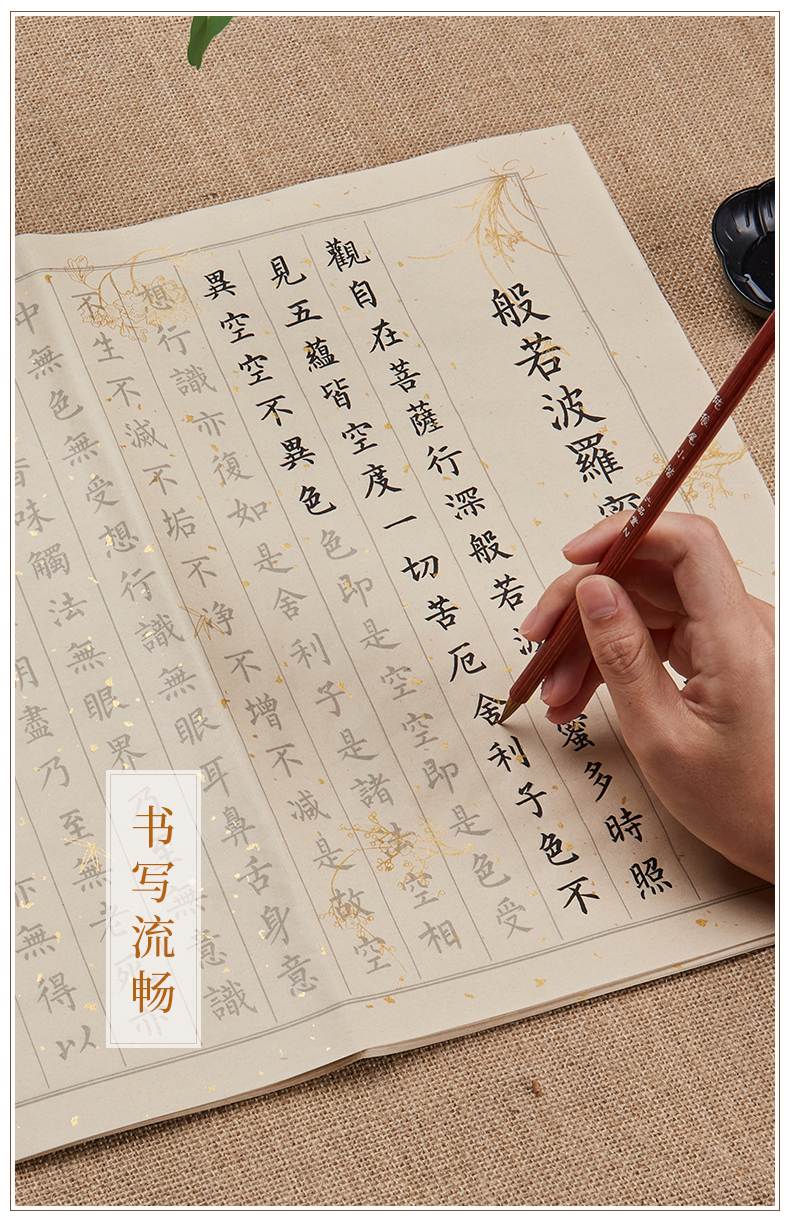 般若波羅
觀自在菩薩行深般若波蜜多時照
見五蘊皆空度一切苦厄舍利子色不
異空空不異色色即是空空即是色受
想行識亦復如是舍利子是諸法空相
不生不滅不垢不净不增不减是故空
中無色無受想行識無眼耳鼻舌身意
香味觸法無眼界乃至無意識
明盡乃至無老死亦
亦無得以
书写流畅